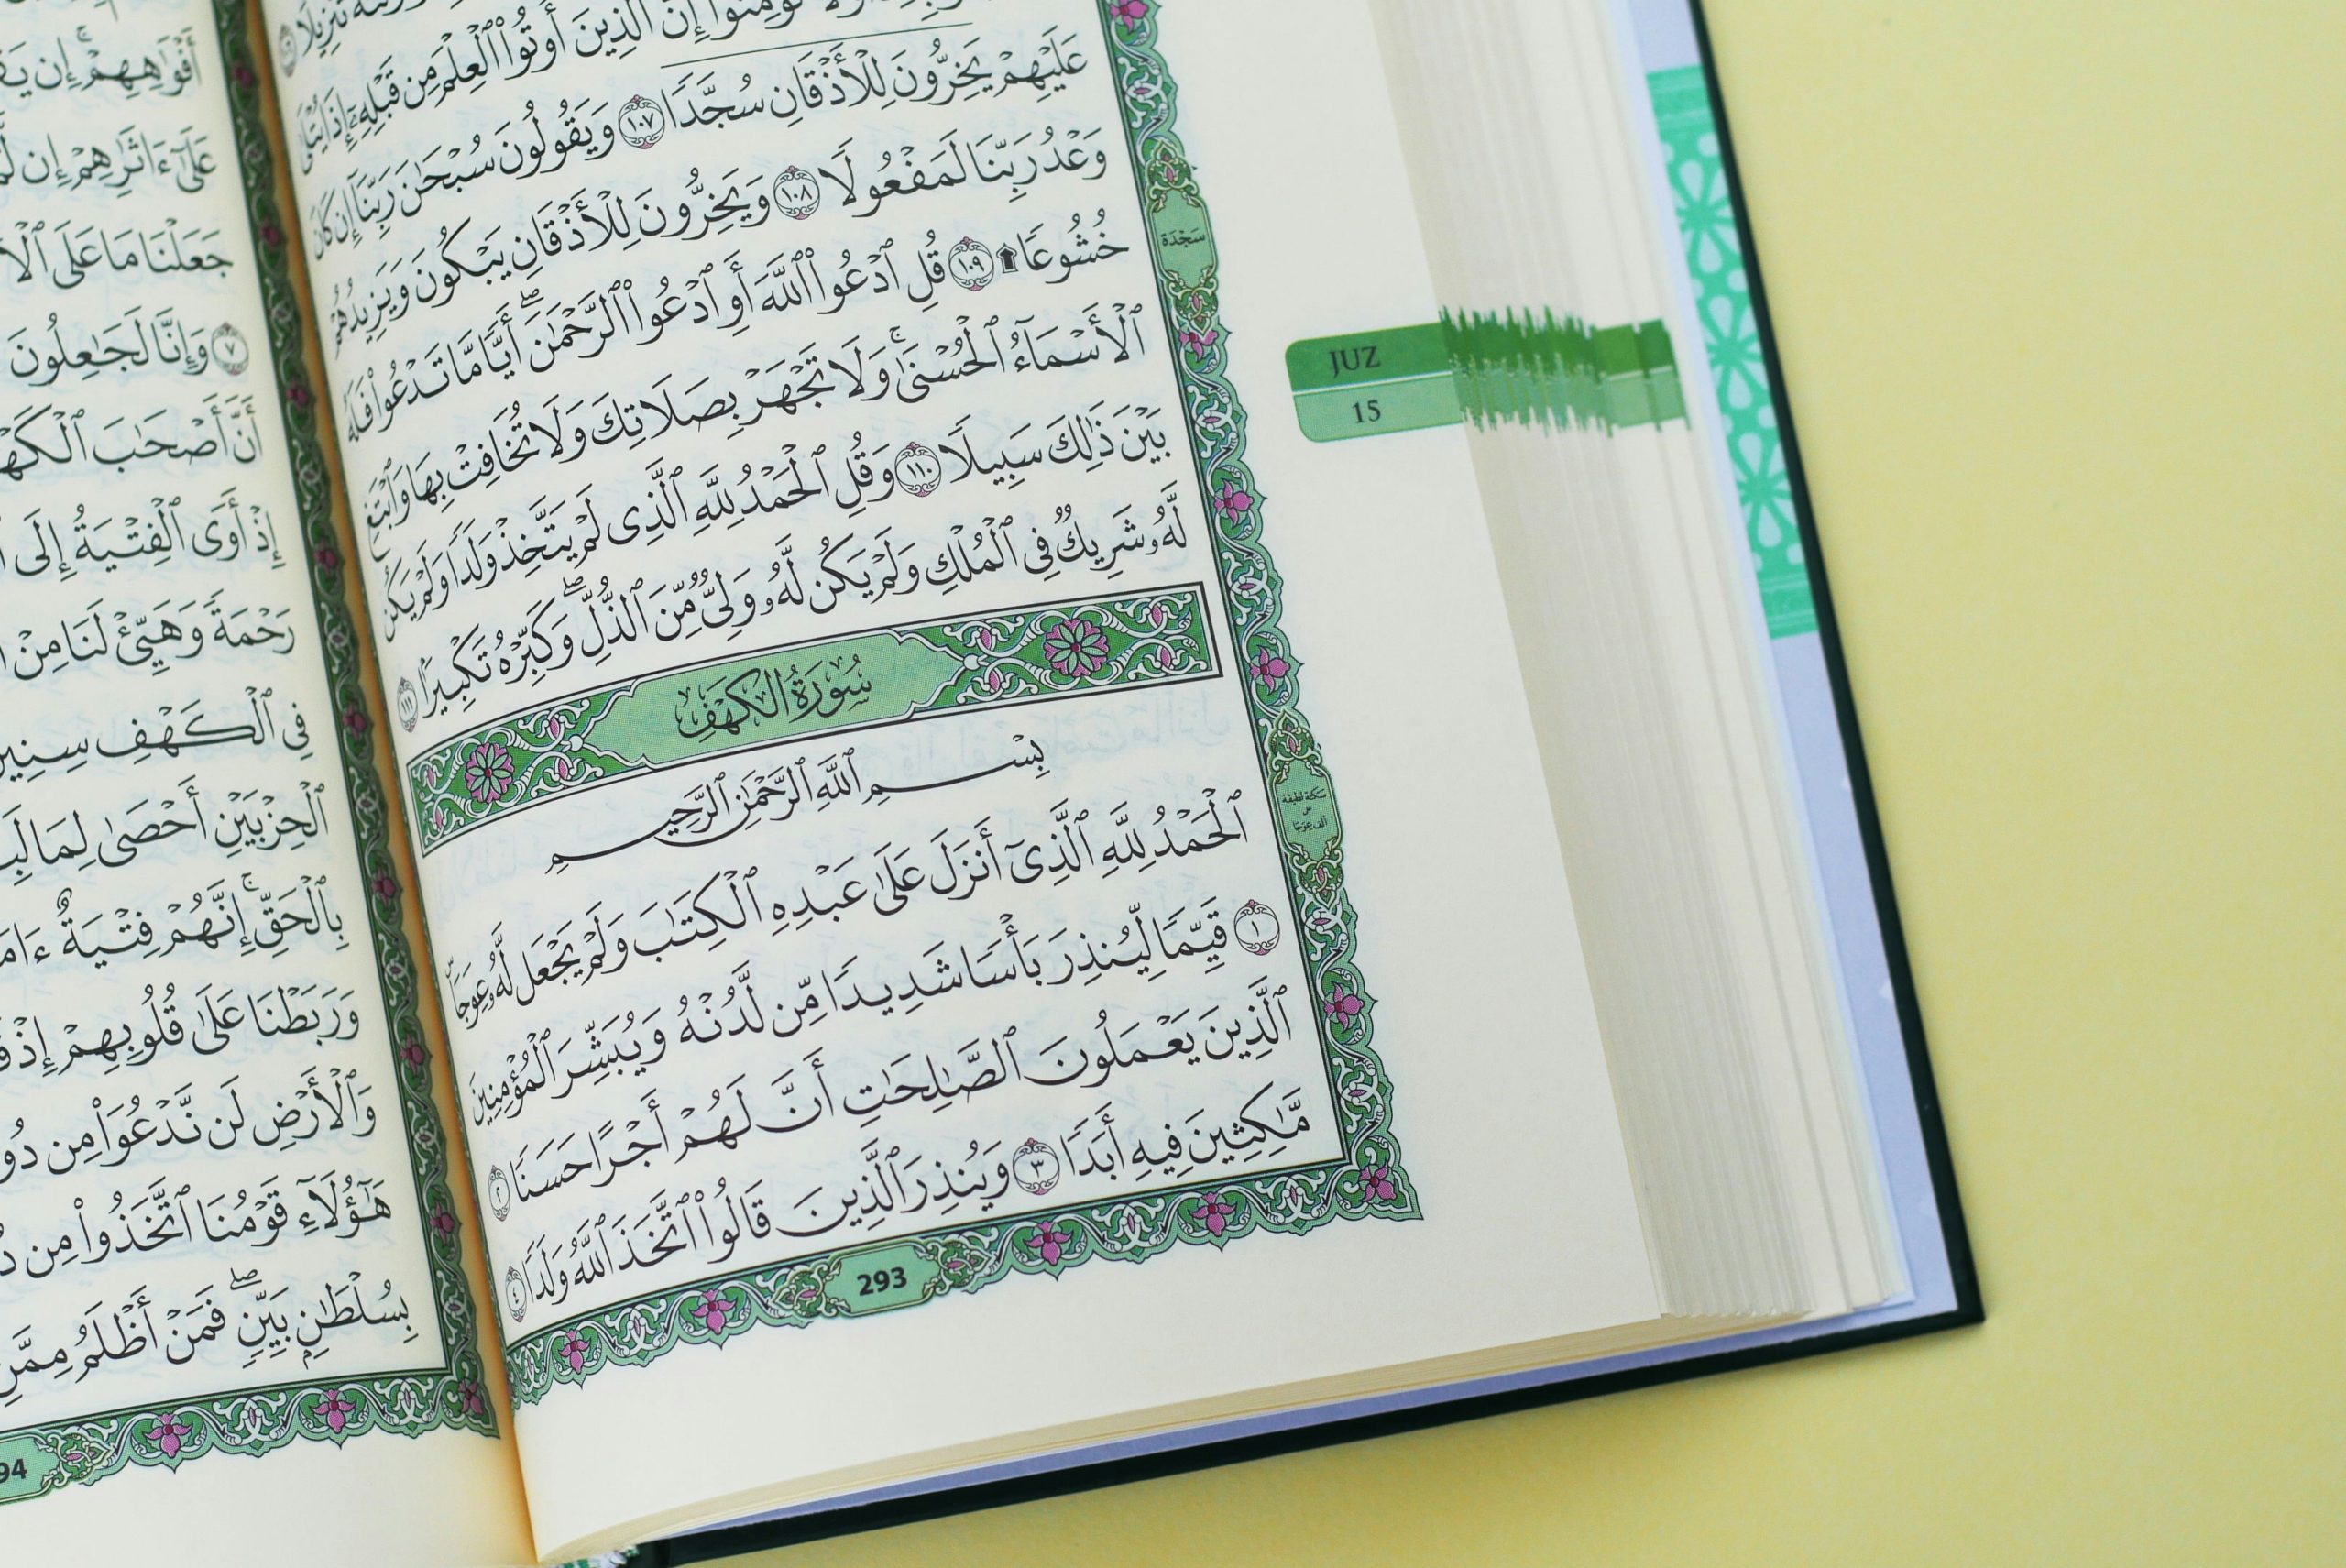 تَنزِيلًا
تُؤْمِنُوٓا۟ إِنَّ ٱلَّذِينَ أُوتُوا۟ ٱلْعِلْمَ مِن قَبْلِهِۦٓ إِذَا يُتْلَىٰ
عَلَيْهِمْ يَخِرُّونَ لِلْأَذْقَانِ سُجَّدًا ١٠٧ وَيَقُولُونَ سُبْحَٰنَ رَبِّنَآ إِن كَانَ
وَعْدُ رَبِّنَا لَمَفْعُولًا ١٠٨ وَيَخِرُّونَ لِلْأَذْقَانِ يَبْكُونَ وَيَزِيدُهُمْ
خُشُوعًا ١٠٩ قُلِ ٱدْعُوا۟ ٱللَّهَ أَوِ ٱدْعُوا۟ ٱلرَّحْمَٰنَ ۖ أَيًّا مَّا تَدْعُوا۟ فَلَهُ
ٱلْأَسْمَآءُ ٱلْحُسْنَىٰ ۚ وَلَا تَجْهَرْ بِصَلَاتِكَ وَلَا تُخَافِتْ بِهَا وَٱبْتَغِ
بَيْنَ ذَٰلِكَ سَبِيلًا ١١٠ وَقُلِ ٱلْحَمْدُ لِلَّهِ ٱلَّذِى لَمْ يَتَّخِذْ وَلَدًا وَلَمْ يَكُن
لَّهُۥ شَرِيكٌ فِى ٱلْمُلْكِ وَلَمْ يَكُن لَّهُۥ وَلِىٌّ مِّنَ ٱلذُّلِّ ۖ وَكَبِّرْهُ تَكْبِيرًا ١١١
سُورَةُ الكَهْفِ
بِسْمِ ٱللَّهِ ٱلرَّحْمَٰنِ ٱلرَّحِيمِ
ٱلْحَمْدُ لِلَّهِ ٱلَّذِىٓ أَنزَلَ عَلَىٰ عَبْدِهِ ٱلْكِتَٰبَ وَلَمْ يَجْعَل لَّهُۥ عِوَجَا ۜ
١ قَيِّمًا لِّيُنذِرَ بَأْسًا شَدِيدًا مِّن لَّدُنْهُ وَيُبَشِّرَ ٱلْمُؤْمِنِينَ
ٱلَّذِينَ يَعْمَلُونَ ٱلصَّٰلِحَٰتِ أَنَّ لَهُمْ أَجْرًا حَسَنًا ٢
مَّٰكِثِينَ فِيهِ أَبَدًا ٣ وَيُنذِرَ ٱلَّذِينَ قَالُوا۟ ٱتَّخَذَ ٱللَّهُ وَلَدًا ٤
293
سَجْدَة
سكتة لطيفة
ألف عوجا
JUZ
15
أَفْوَٰهِهِمْ ۚ إِن
عَلَىٰٓ ءَاثَٰرِهِمْ إِن
جَعَلْنَا مَا عَلَى
٧ وَإِنَّا لَجَٰعِلُونَ
أَنَّ أَصْحَٰبَ
إِذْ أَوَى ٱلْفِتْيَةُ إِلَى
رَحْمَةً وَهَيِّئْ لَنَا مِنْ
فِى ٱلْكَهْفِ
ٱلْحِزْبَيْنِ أَحْصَىٰ
بِٱلْحَقِّ ۚ إِنَّهُمْ فِتْيَةٌ
وَرَبَطْنَا عَلَىٰ قُلُوبِهِمْ
وَٱلْأَرْضِ لَن نَّدْعُوَا۟ مِن
هَٰٓؤُلَآءِ قَوْمُنَا ٱتَّخَذُوا۟ مِن
بِسُلْطَٰنٍۭ بَيِّنٍ ۖ فَمَنْ أَظْلَمُ مِمَّنِ
94